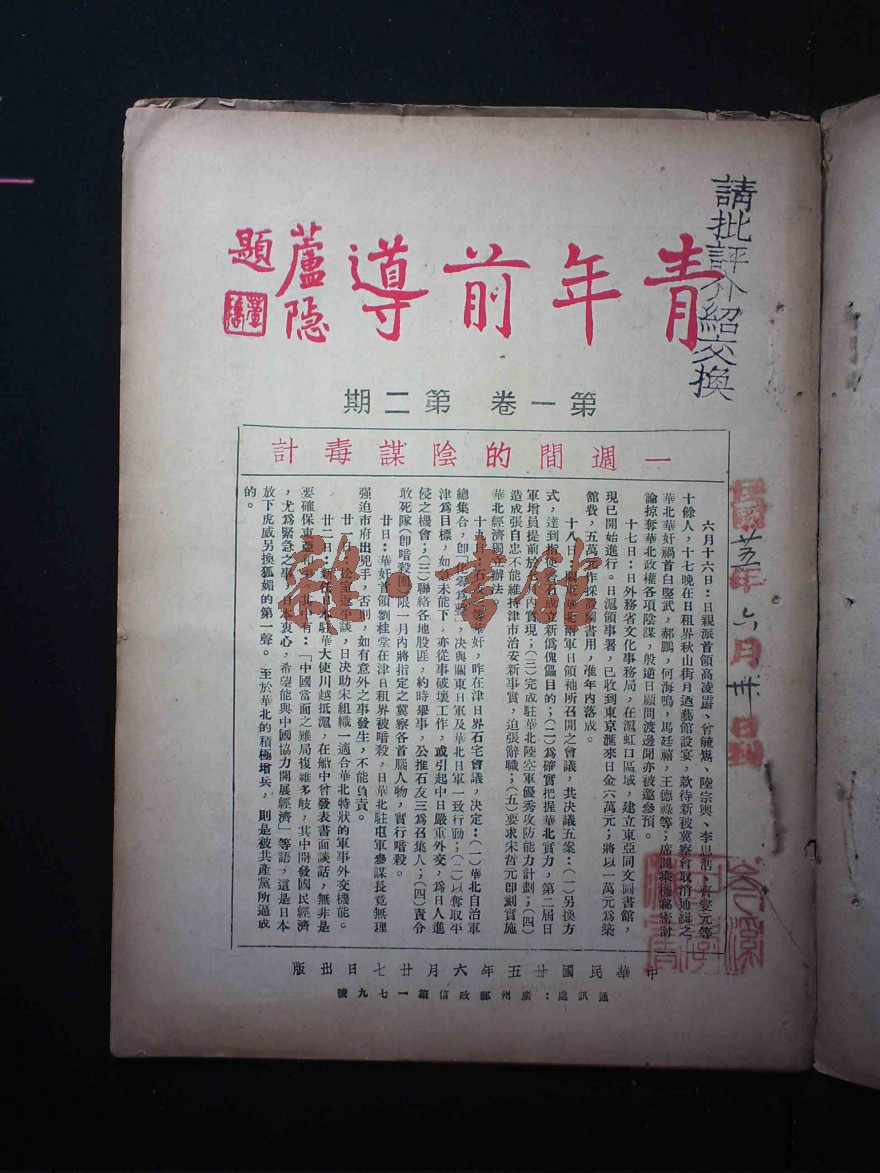 請批評介紹交換
青年前導
蘆隱
題
第一卷 第二期
一週間的陰謀毒計
六月十六日:日親派首領高凌霨、曾毓雋、陸宗輿、李思浩、齊燮元等
十餘人,十七晚在日租界秋山街月迺藝館設宴,款待新被冀察會取消通緝之
華北華奸禍首白堅武,郝鵬,何海鳴,馬廷福,王德祿等;席間乘機密討
論掠奪華北政權各項陰謀,殷逆日顧問渡邊聞亦被邀參預。
十七日:日外務省文化事務局,在滬虹口區域,建立東亞同文圖書館,
現已開始進行。日滬領事署,已收到東京滙來日金六萬元;將以一萬元為築
館費,五萬元作採置圖書用,准年內落成。
十八日:關東華北兩軍日領袖所召開之會議,共決議五案:(一)另換方
式,達到指使者石成立新偽傀儡目的;(二)為確實把握華北實力,第二屆日
軍增員提前於七月內實現;(三)完成駐華北陸空軍優秀攻防能力計劃;(四)
造成張自忠不能維持津市治安新事實,迫張辭職;(五)要求宋哲元即刻實施
華北經濟獨立辦法。
十九日:石友三等華奸,昨在津日界石宅會議,決定:(一)華北自治軍
總集合,即化零為整,決與關東日軍及華北日軍一致行動;(二)以奪取平
津為目標,如當未能下,亦從事破壞工作,或引起中日嚴重外交,為日人進
侵之機會;(三)聯絡各地股匪,約時舉事,公推石友三為召集人;(四)責令
敢死隊(即暗殺團)限一月內將指定之冀察各首腦人物,實行暗殺。
廿日:華奸首領劉桂堂在津日租界被暗殺,日華北駐屯軍參謀長竟無理
强迫市府出兇手,否則,如有意外之事發生,不能負責。
廿一日:松室返平談,日決助宋組織一適合華北特狀的軍事外交機能。
廿二日:新任日本駐華大使川越抵滬,在船中曾發表書面談話,無非是
要確保東亞和平,其中有:「中國當面之難局複雜多岐,其中開發國民經濟
,尤為緊急之事,日本衷心,希望能與中國協力開展經濟」等語,這是日本
放下虎威另換狐媚的第一聲。至於華北的積極增兵,則是被共產黨所逼成
的。
中華民國廿五年六月廿七日出版
通訊處:廣州郵政信箱一七九號
民國廿五年六月卅日到
雜·書館